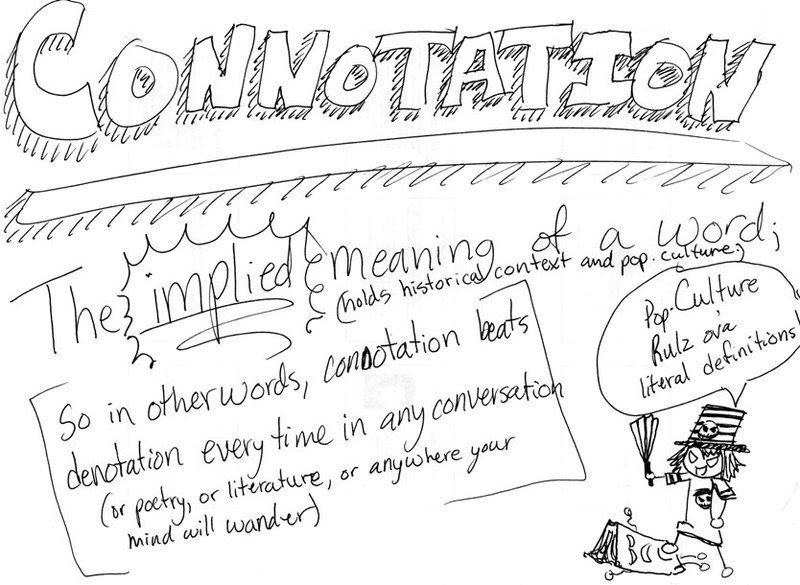 CONNOTATION
The implied meaning of a word;
(holds historical context and pop. culture.)
So in other words, connotation beats
denotation every time in any conversation
(or poetry, or literature, or anywhere your
mind will wander)
Pop. Culture
Rulz ova
literal definitions!